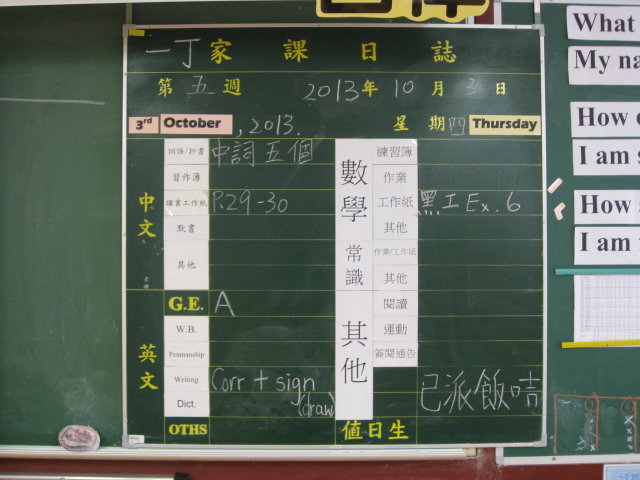 一丁家課日誌
第五週 2013年10月3日
3rd October, 2013. 星期四 Thursday
中文
詞語/抄書 中詞五個
習作簿
課業工作紙 P.29-30
默書
其他
英文
G.E. A
W.B.
Penmanship
Writing Corr + sign
(draw)
Dict.
OTHS
數學
練習簿
作業
工作紙 黑工Ex.6
其他
常識
作業/工作紙
其他
其他
閱讀
運動
簽閱通告
已派飯咭
值日生
What
My na
How
I am s
How
I am